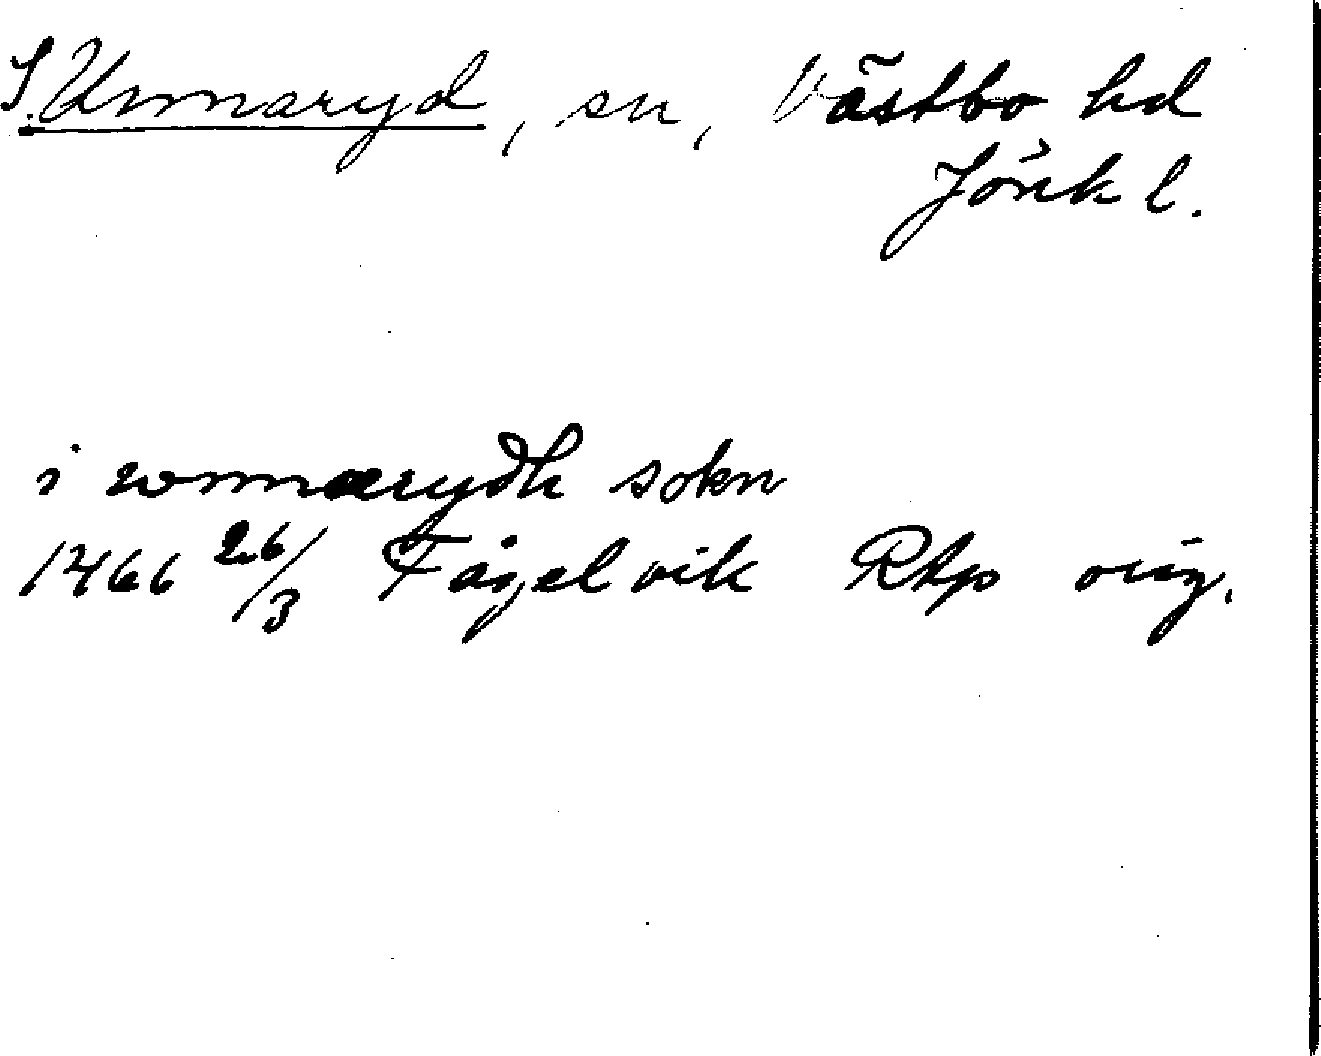 S. Unnaryd, sn, Västbo hd
Jönk l.
i wnnærydh sokn
1466 26/3 Fågelvik Rtp orig.